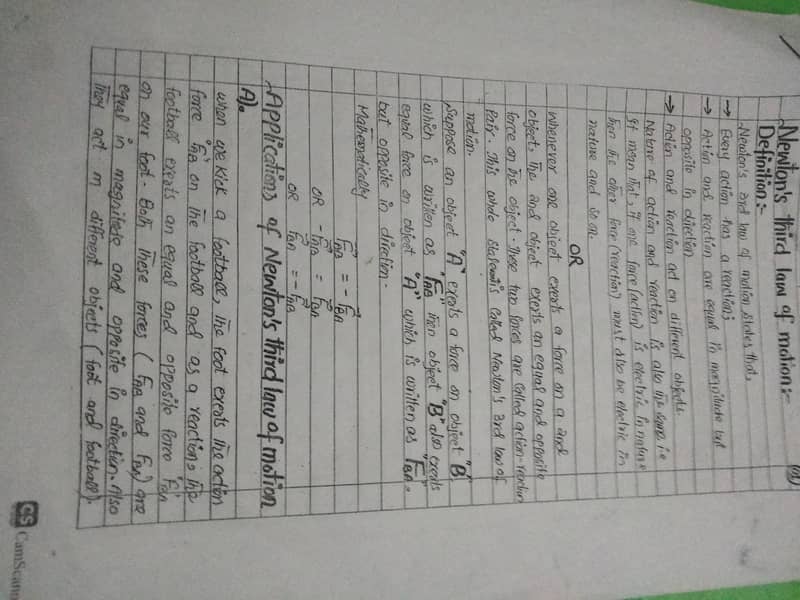 Newton's third law of motion:-
Definition:-
Newton's 3rd law of motion states that,
→ Every action has a reaction;
→ Action and reaction are equal in magnitude but
opposite in direction.
→ Action and reaction act on different objects.
Nature of action and reaction is also the same i.e
It mean that, if one force (action) is electric in nature
then the other force (reaction) must also be electric in
nature and so on.
OR
Whenever one object exerts a force on a 2nd
object, the 2nd object exerts an equal and opposite
force on the object. These two forces are called action-reaction
Pair. This whole statement is called Newton's 3rd law of
motion.
Suppose an object "A" exerts a force on object "B",
which is written as "FAB" then object "B" also exerts
equal force on object "A" which is written as "FBA"
but opposite in direction.
Mathematically
FAB = -FBA
OR -FAB = FBA
OR FBA = -FAB
Applications of Newton's third law of motion
A)
when we kick a football, the foot exerts the action
force "FAB" on the football and as a reaction, the
football exerts an equal and opposite force "FBA"
on our foot. Both these forces (FAB and FBA) are
equal in magnitude and opposite in direction. Also
they act in different objects (foot and football).
CS CamScann